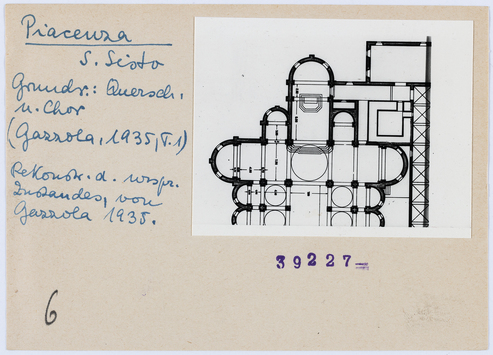 Piacenza
S. Sisto
Grundr.: Quersch.
u. Chor
(Gazzola, 1935, T. 1)
Rekonstr. d. urspr.
Zustandes, von
Gazzola 1935.
39227
6